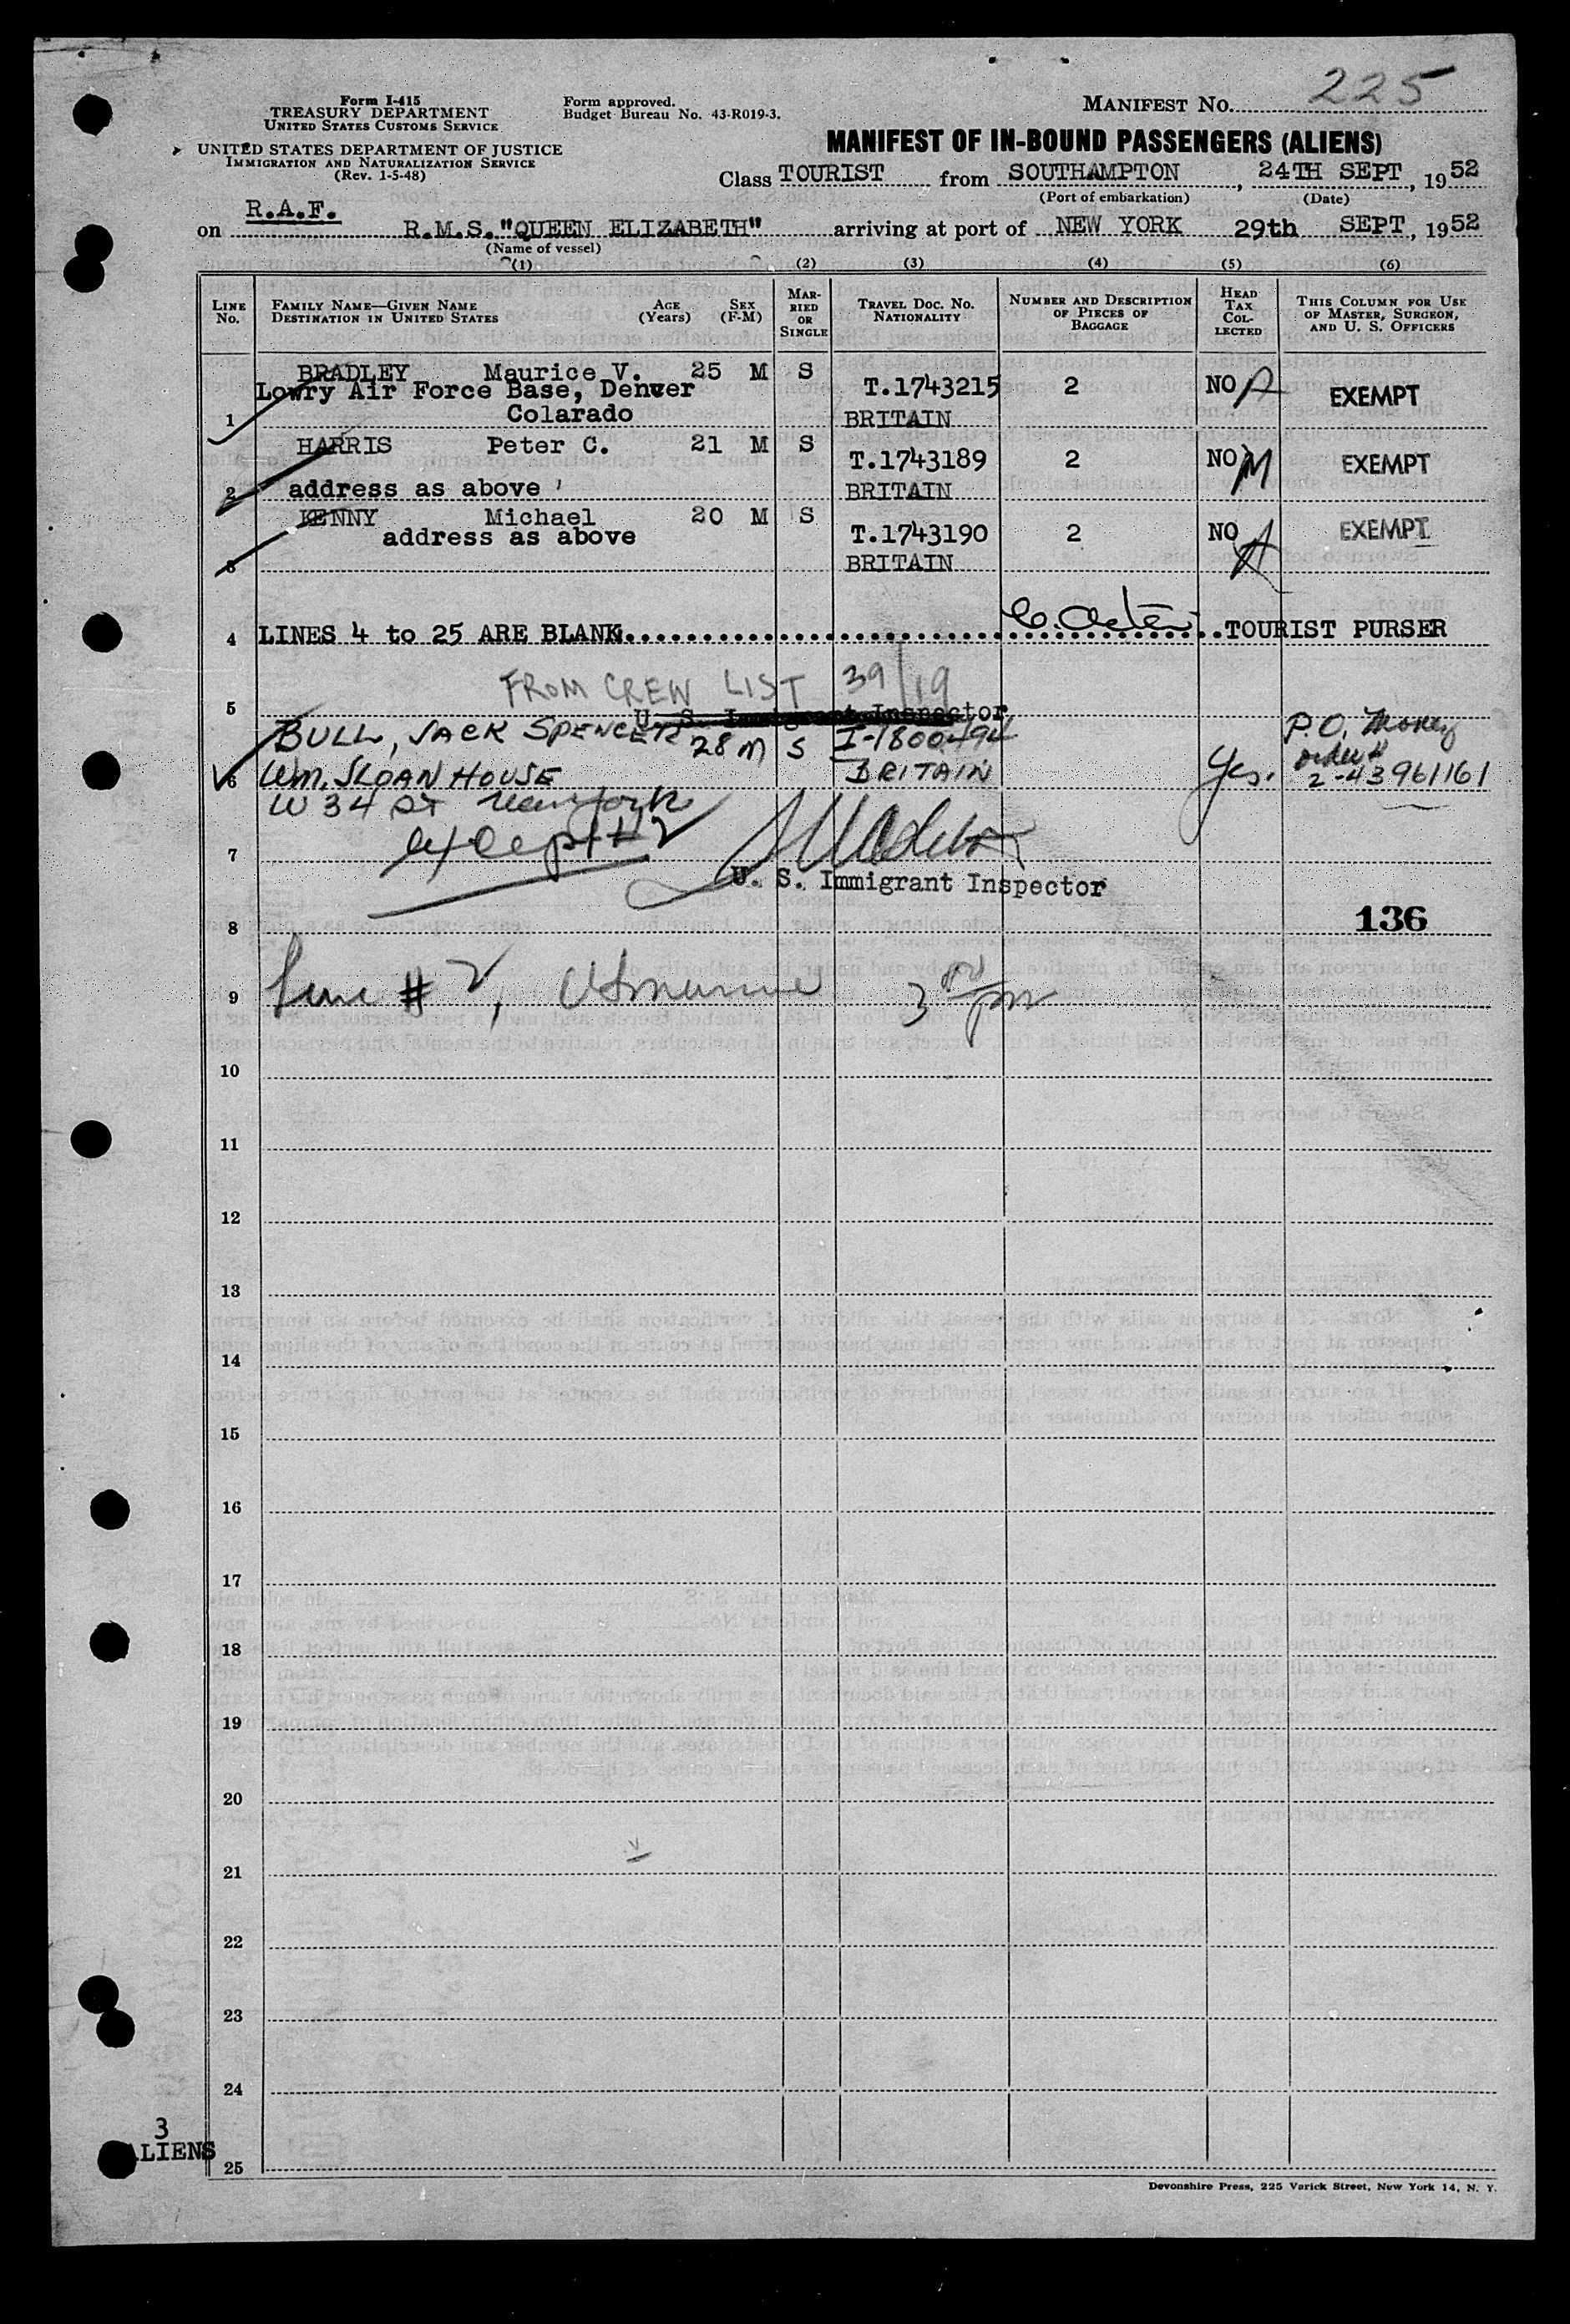 225
Form I-415
TREASURY DEPARTMENT
UNITED STATES CUSTOMS SERVICE
UNITED STATES DEPARTMENT OF JUSTICE
IMMIGRATION AND NATURALIZATION SERVICE
(Rev. 1-5-48)
Form approved.
Budget Bureau No. 43-R019-3.
MANIFEST No.
MANIFEST OF IN-BOUND PASSENGERS (ALIENS)
Class TOURIST from SOUTHAMPTON, 24TH SEPT, 1952
(Port of embarkation) (Date)
R.A.F.
on R.M.S. "QUEEN ELIZABETH" arriving at port of NEW YORK 29th SEPT, 1952
(Name of vessel)
(1) (2) (3) (4) (5) (6)
LINE No. FAMILY NAME—GIVEN NAME DESTINATION IN UNITED STATES AGE (Years) SEX (F-M) MARRIED OR SINGLE TRAVEL DOC. NO. NATIONALITY NUMBER AND DESCRIPTION OF PIECES OF BAGGAGE HEAD TAX COLLECTED THIS COLUMN FOR USE OF MASTER, SURGEON, AND U. S. OFFICERS
BRADLEY Maurice V. 25 M S
Lowry Air Force Base, Denver T.1743215 2 NO EXEMPT
1 Colarado BRITAIN
HARRIS Peter C. 21 M S
T.1743189 2 NO EXEMPT
2 address as above BRITAIN
KENNY Michael 20 M S
address as above T.1743190 2 NO EXEMPT
3 BRITAIN
4 LINES 4 to 25 ARE BLANK TOURIST PURSER
FROM CREW LIST 39/19
5 U. S. Immigrant Inspector
BULL, JACK SPENCER 28 M S I-1800494 P.O. Money
6 WM. SLOAN HOUSE BRITAIN Yes. order # 2-43961161
W 34 ST New York
7
U. S. Immigrant Inspector
136
8
9 Line # 2, 3 pm
10
11
12
13
14
15
16
17
18
19
20
21
22
23
24
3
ALIENS
25
Devonshire Press, 225 Varick Street, New York 14, N. Y.